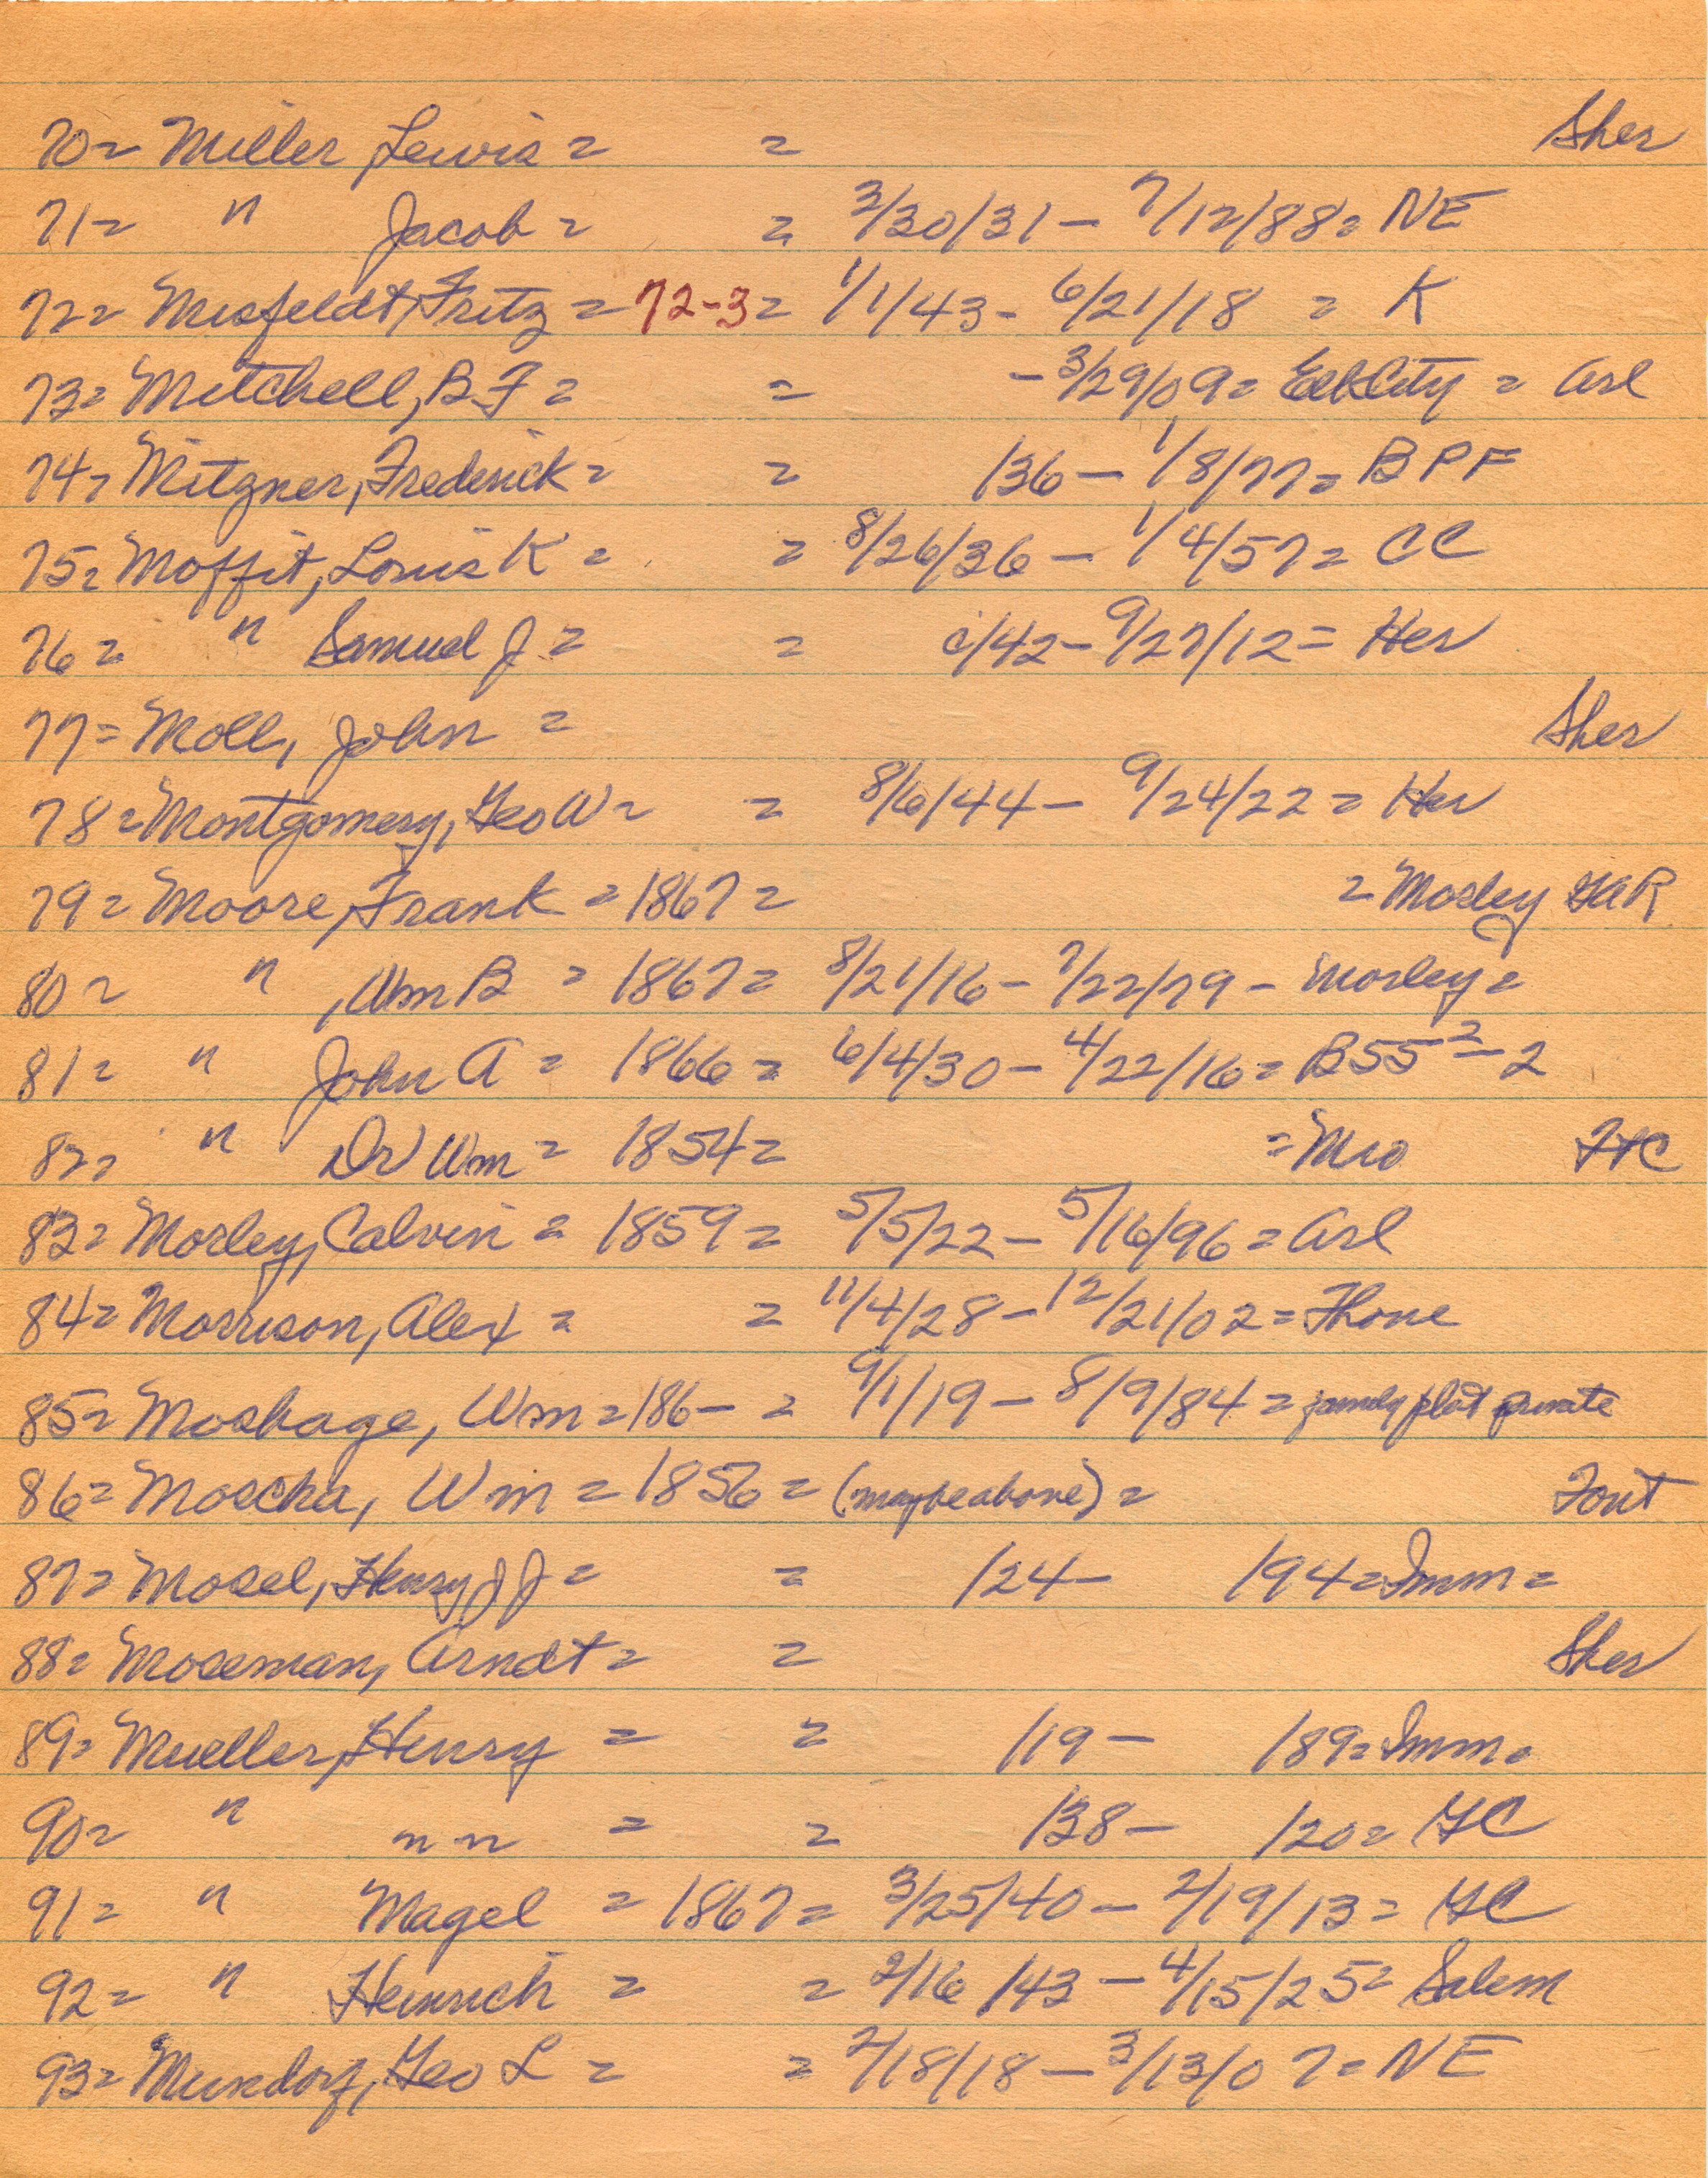 70= Miller, Lewis = = Sher
71= " Jacob = = 3/30/31 - 7/12/88 = NE
72= Misfeldt, Fritz = 72-3 = 1/1/43 - 6/21/18 = K
73= Mitchell, B F = = - 3/29/09 = Elk City = Arl
74= Mitzner, Frederick = = /36 - 1/8/77 = BPF
75= Moffit, Louis K = = 8/26/36 - 1/4/57 = CC
76= " Samuel J = = c/42 - 9/27/12 = Her
77= Moll, John = Sher
78= Montgomery, Geo W = = 8/6/44 - 9/24/22 = Her
79= Moore, Frank = 1867 = = Morley GAR
80= " , Wm B = 1867 = 8/21/16 - 7/22/79 - Morley =
81= " John A = 1866 = 6/4/30 - 4/22/16 = B55 2 - 2
82= " Dr Wm = 1854 = = Mio FTC
83= Morley, Calvin = 1859 = 5/5/22 - 5/16/96 = Arl
84= Morrison, Alex = = 11/4/28 - 12/21/02 = Fhone
85= Mosbage, Wm = 186- = 9/1/19 - 8/9/84 = family plot private
86= Moscha, Wm = 1856 = (maybe above) = Font
87= Mosel, Henry J J = = /24 - /94 = Imm =
88= Moseman, Arndt = = Sher
89= Mueller, Henry = = /19 - /89 = Imm =
90= " " " = = /38 - /20 = GC
91= " Magel = 1867 = 3/25/40 - 2/19/13 = GC
92= " Heinrich = = 2/16/43 - 4/15/25 = Salem
93= Mundorf, Geo L = = 2/18/18 - 3/13/07 = NE